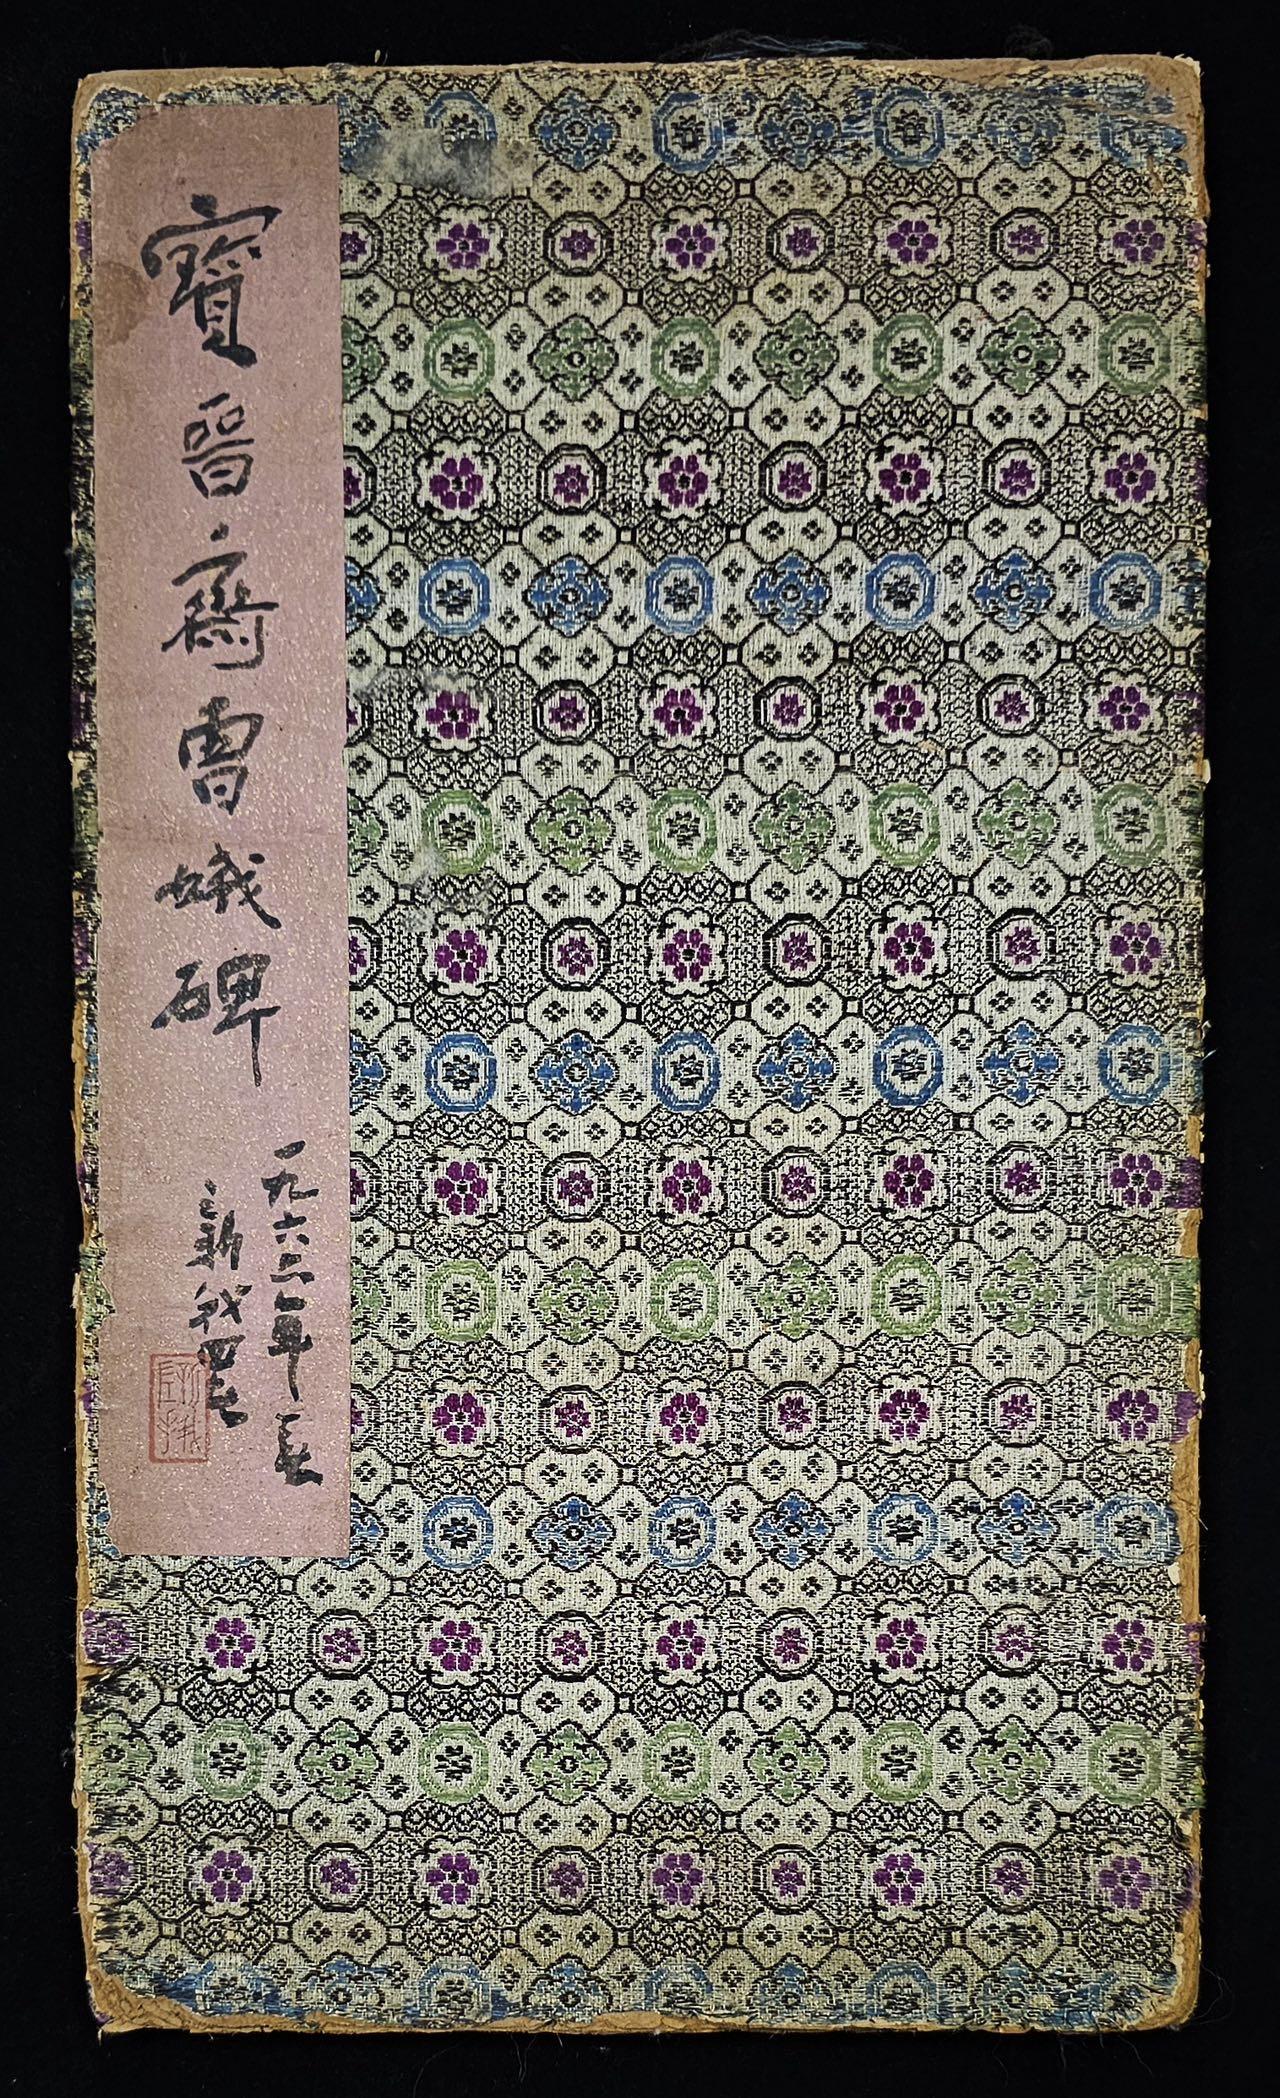 寶晉齋曹娥碑
一九六三年春
新我署